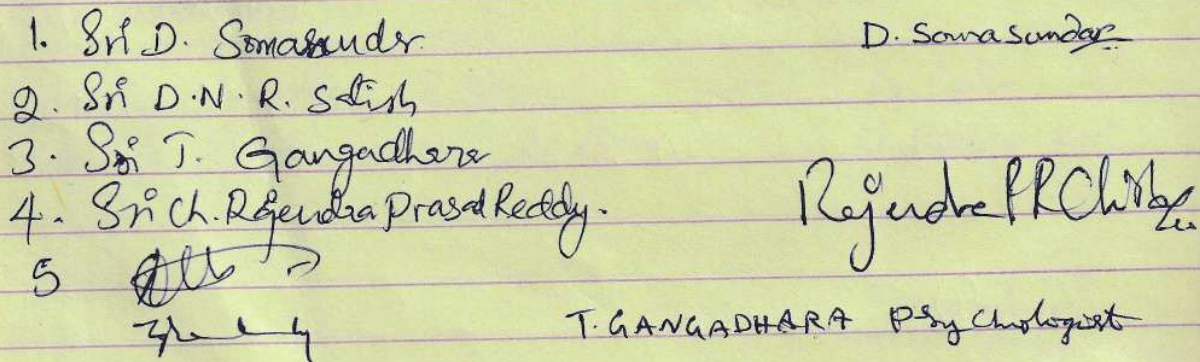 1. Sri D. Somasundr. D. Somasundar
2. Sri D.N.R. Satish
3. Sri T. Gangadhara
4. Sri Ch. Rajendra Prasad Reddy. Rajendra P R Ch
5
T. GANGADHARA Psychologist